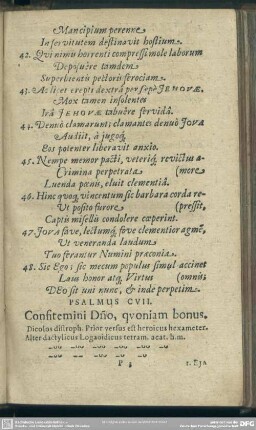 Mancipium perenne
In servitutem destinavit hostium.
42. Qui nimiū horrenti compressi mole laborum
Deposuêre tandem
Superbientis pectoris ferociam.
43. Ac licet erepti dextrâ per sæpè JEHOVÆ,
Mox tamen insolentes
Irâ JEHOVÆ tabuêre fervidâ.
44. Denuò clamarunt; clamantes denuò JOVA
Audiit, à jugoq́
Eos potenter liberavit anxio.
45. Nempe memor pacti, veterisq́ revictus a-
Crimina perpetrata (more
Luenda pœnis, eluit clementiâ.
46. Hinc quoq vincentum sic barbara corda re-
Ut posito furore (pressit,
Captis misellis condolere cœperint.
47. JOVA fave, lectumq́ fove clementior agmē,
Ut veneranda laudum
Tuo serantur Numini præconia.
48. Sic Ego; sic mecum populus simul accinet
Laus honor atq Virtus (omnis;
DEo sit uni nunc, & inde perpetim.
PSALMUS CVII.
Confitemini Dño, qvoniam bonus.
Dicolos distroph. Prior versus est heroicus hexameter.
Alter dactylicus Logaœdicus tetram. acat. h. m.
P 4